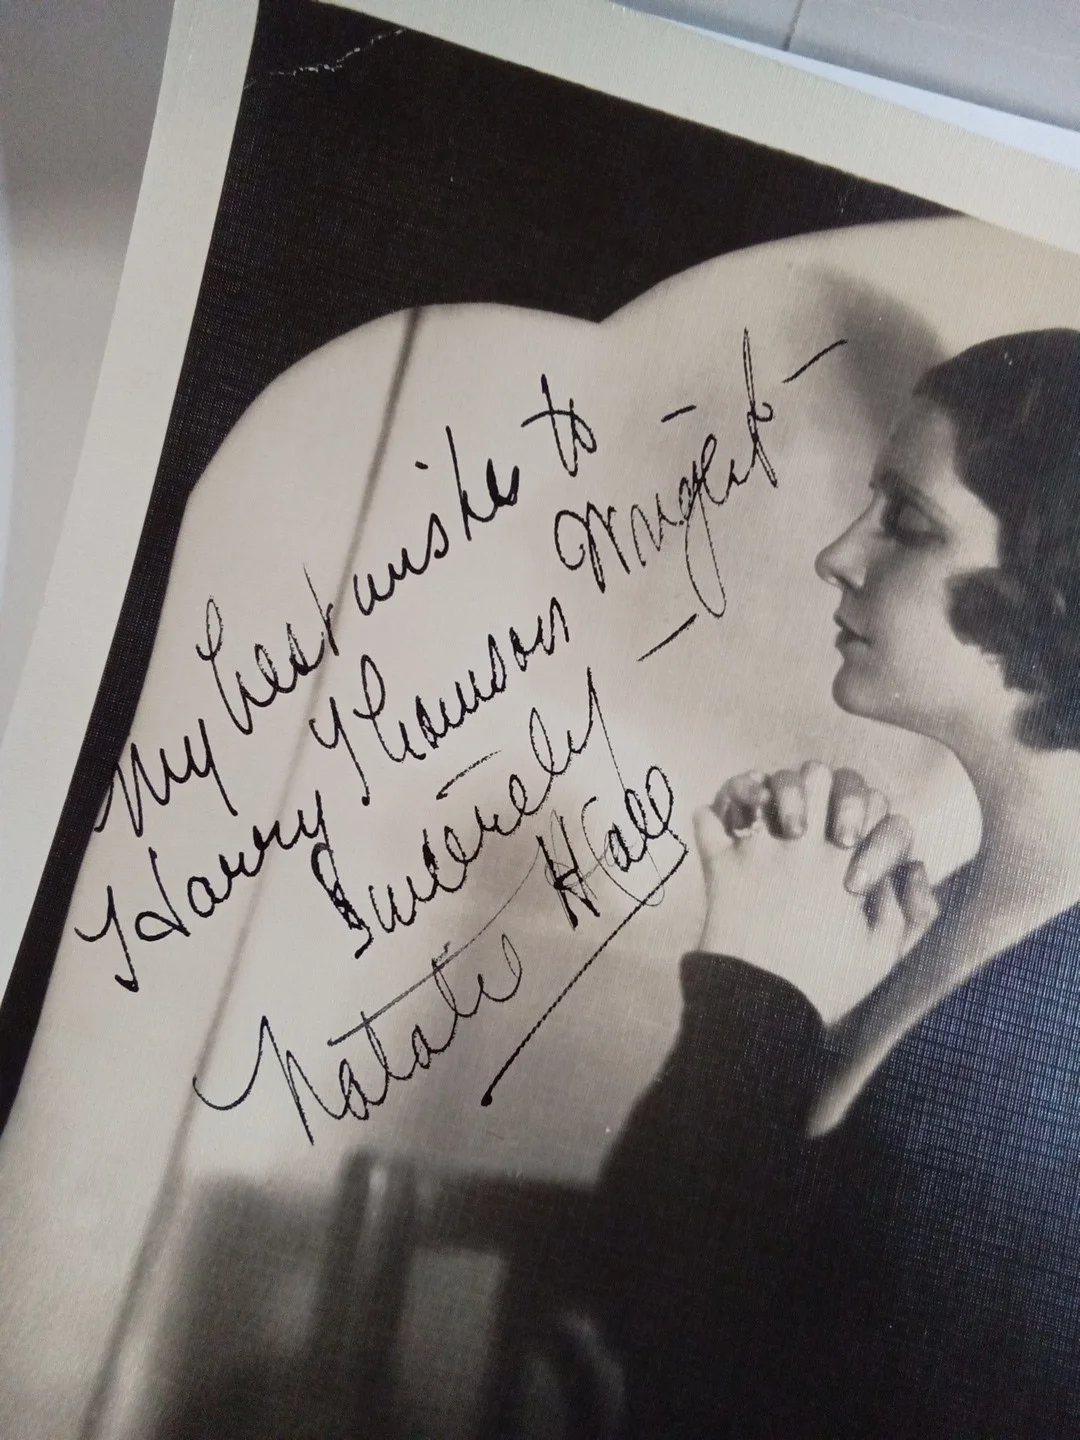 My best wishes to
Harry Wright —
Sincerely —
Natalie Hall